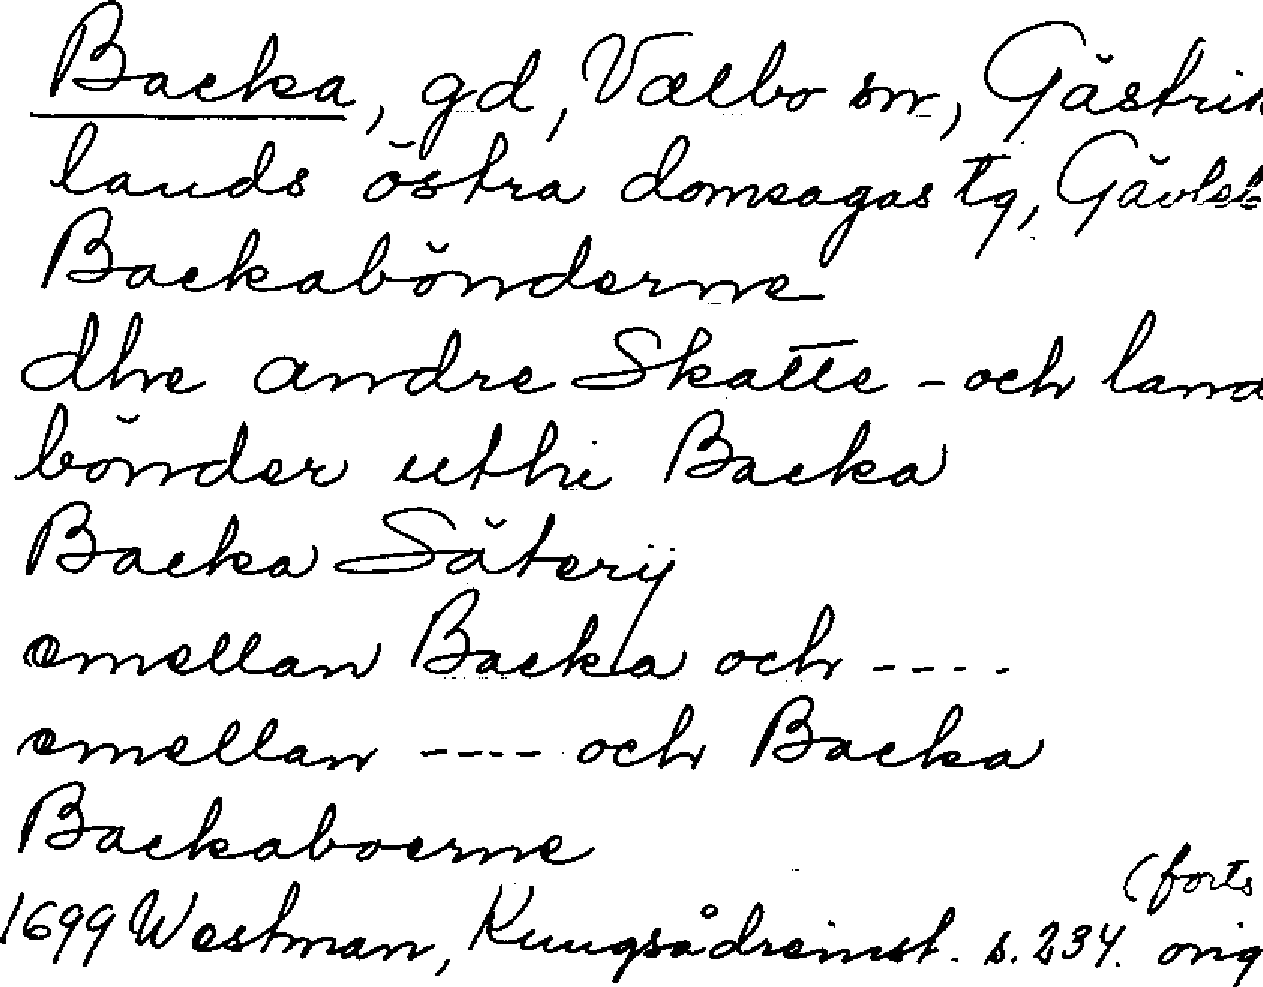 Backa, gd, Valbo sn, Gästrik
lands östra domsagas tg, Gävleb
Backabönderne
dhe andre Skatte-och land
bönder uthi Backa
Backa Säterij
emellan Backa och ----
emellan ---- och Backa
Backaboerne
(forts
1699 Westman, Kungsådreinst. s. 234. orig